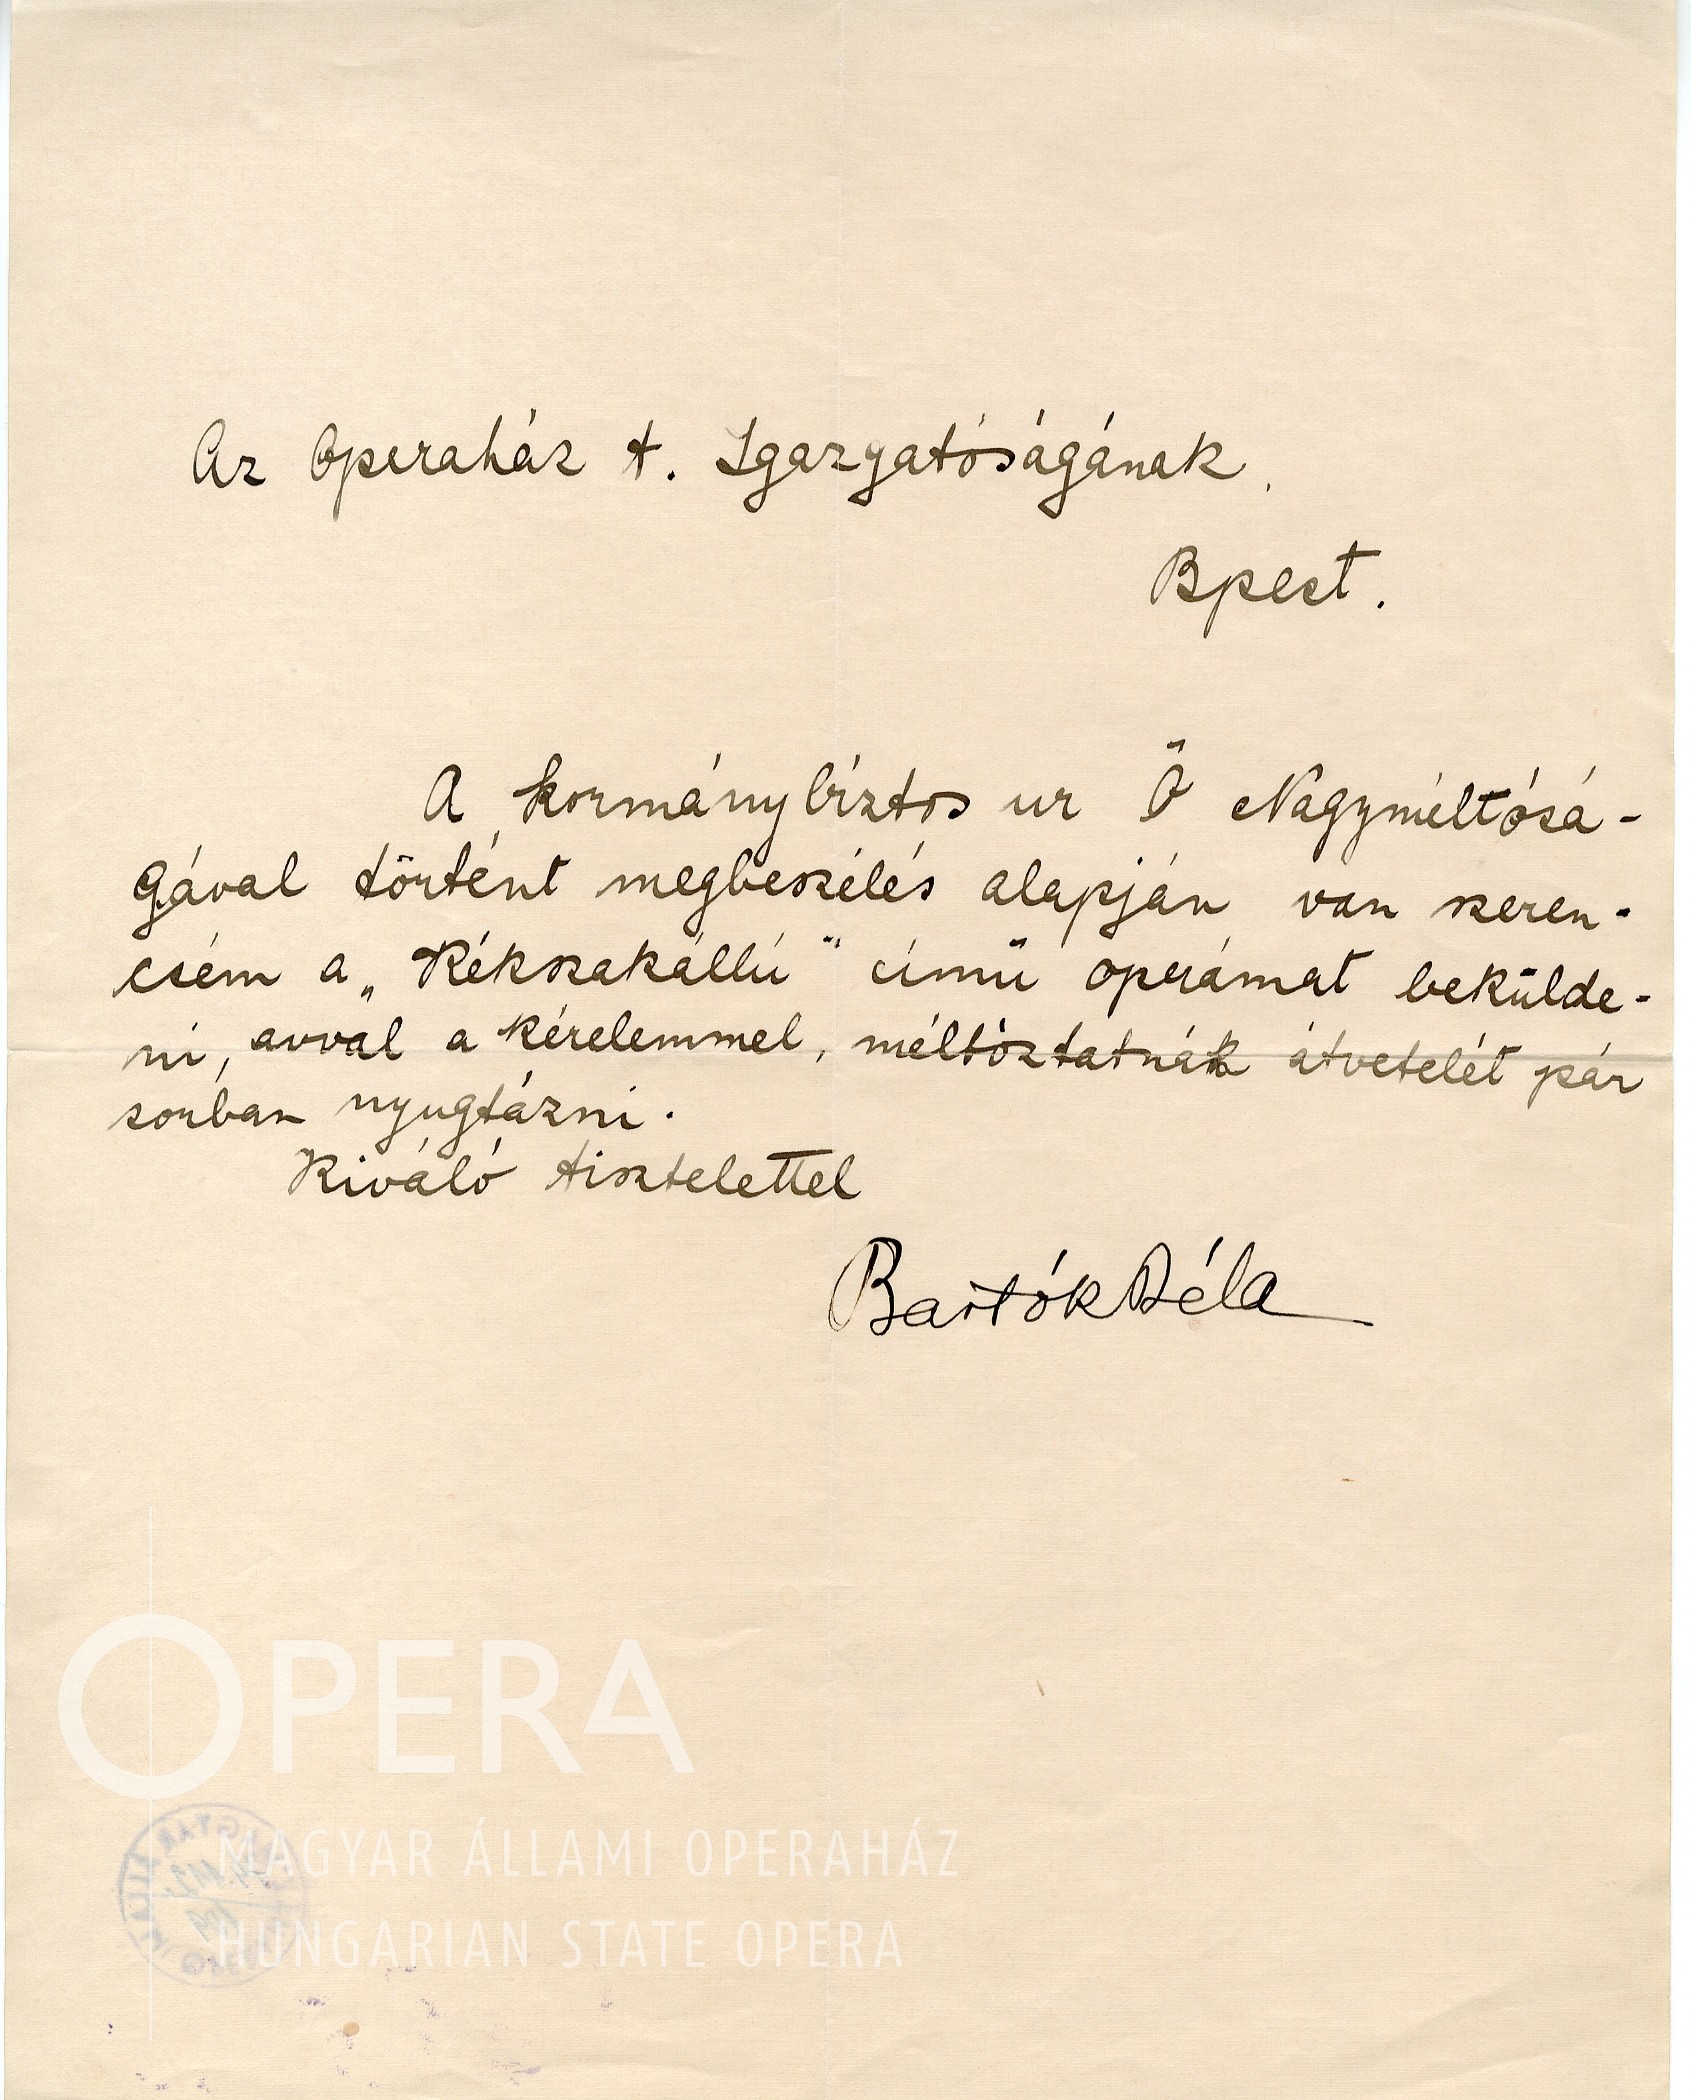 Az Operaház t. Igazgatóságának.
Bpest.
A kormánybiztos ur Ő Nagyméltósá-
gával történt megbeszélés alapján van szeren-
csém a „Kékszakállú" című operámat bekülde-
ni, avval a kérelemmel, méltóztatnák átvetelét pár
sorban nyugtázni.
Kiváló tisztelettel
Bartók Béla
OPERA
MAGYAR ÁLLAMI OPERAHÁZ
HUNGARIAN STATE OPERA